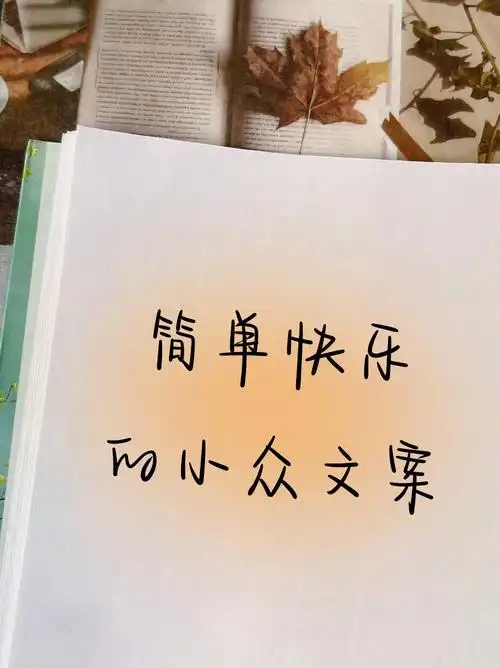 简单快乐
的小众文案